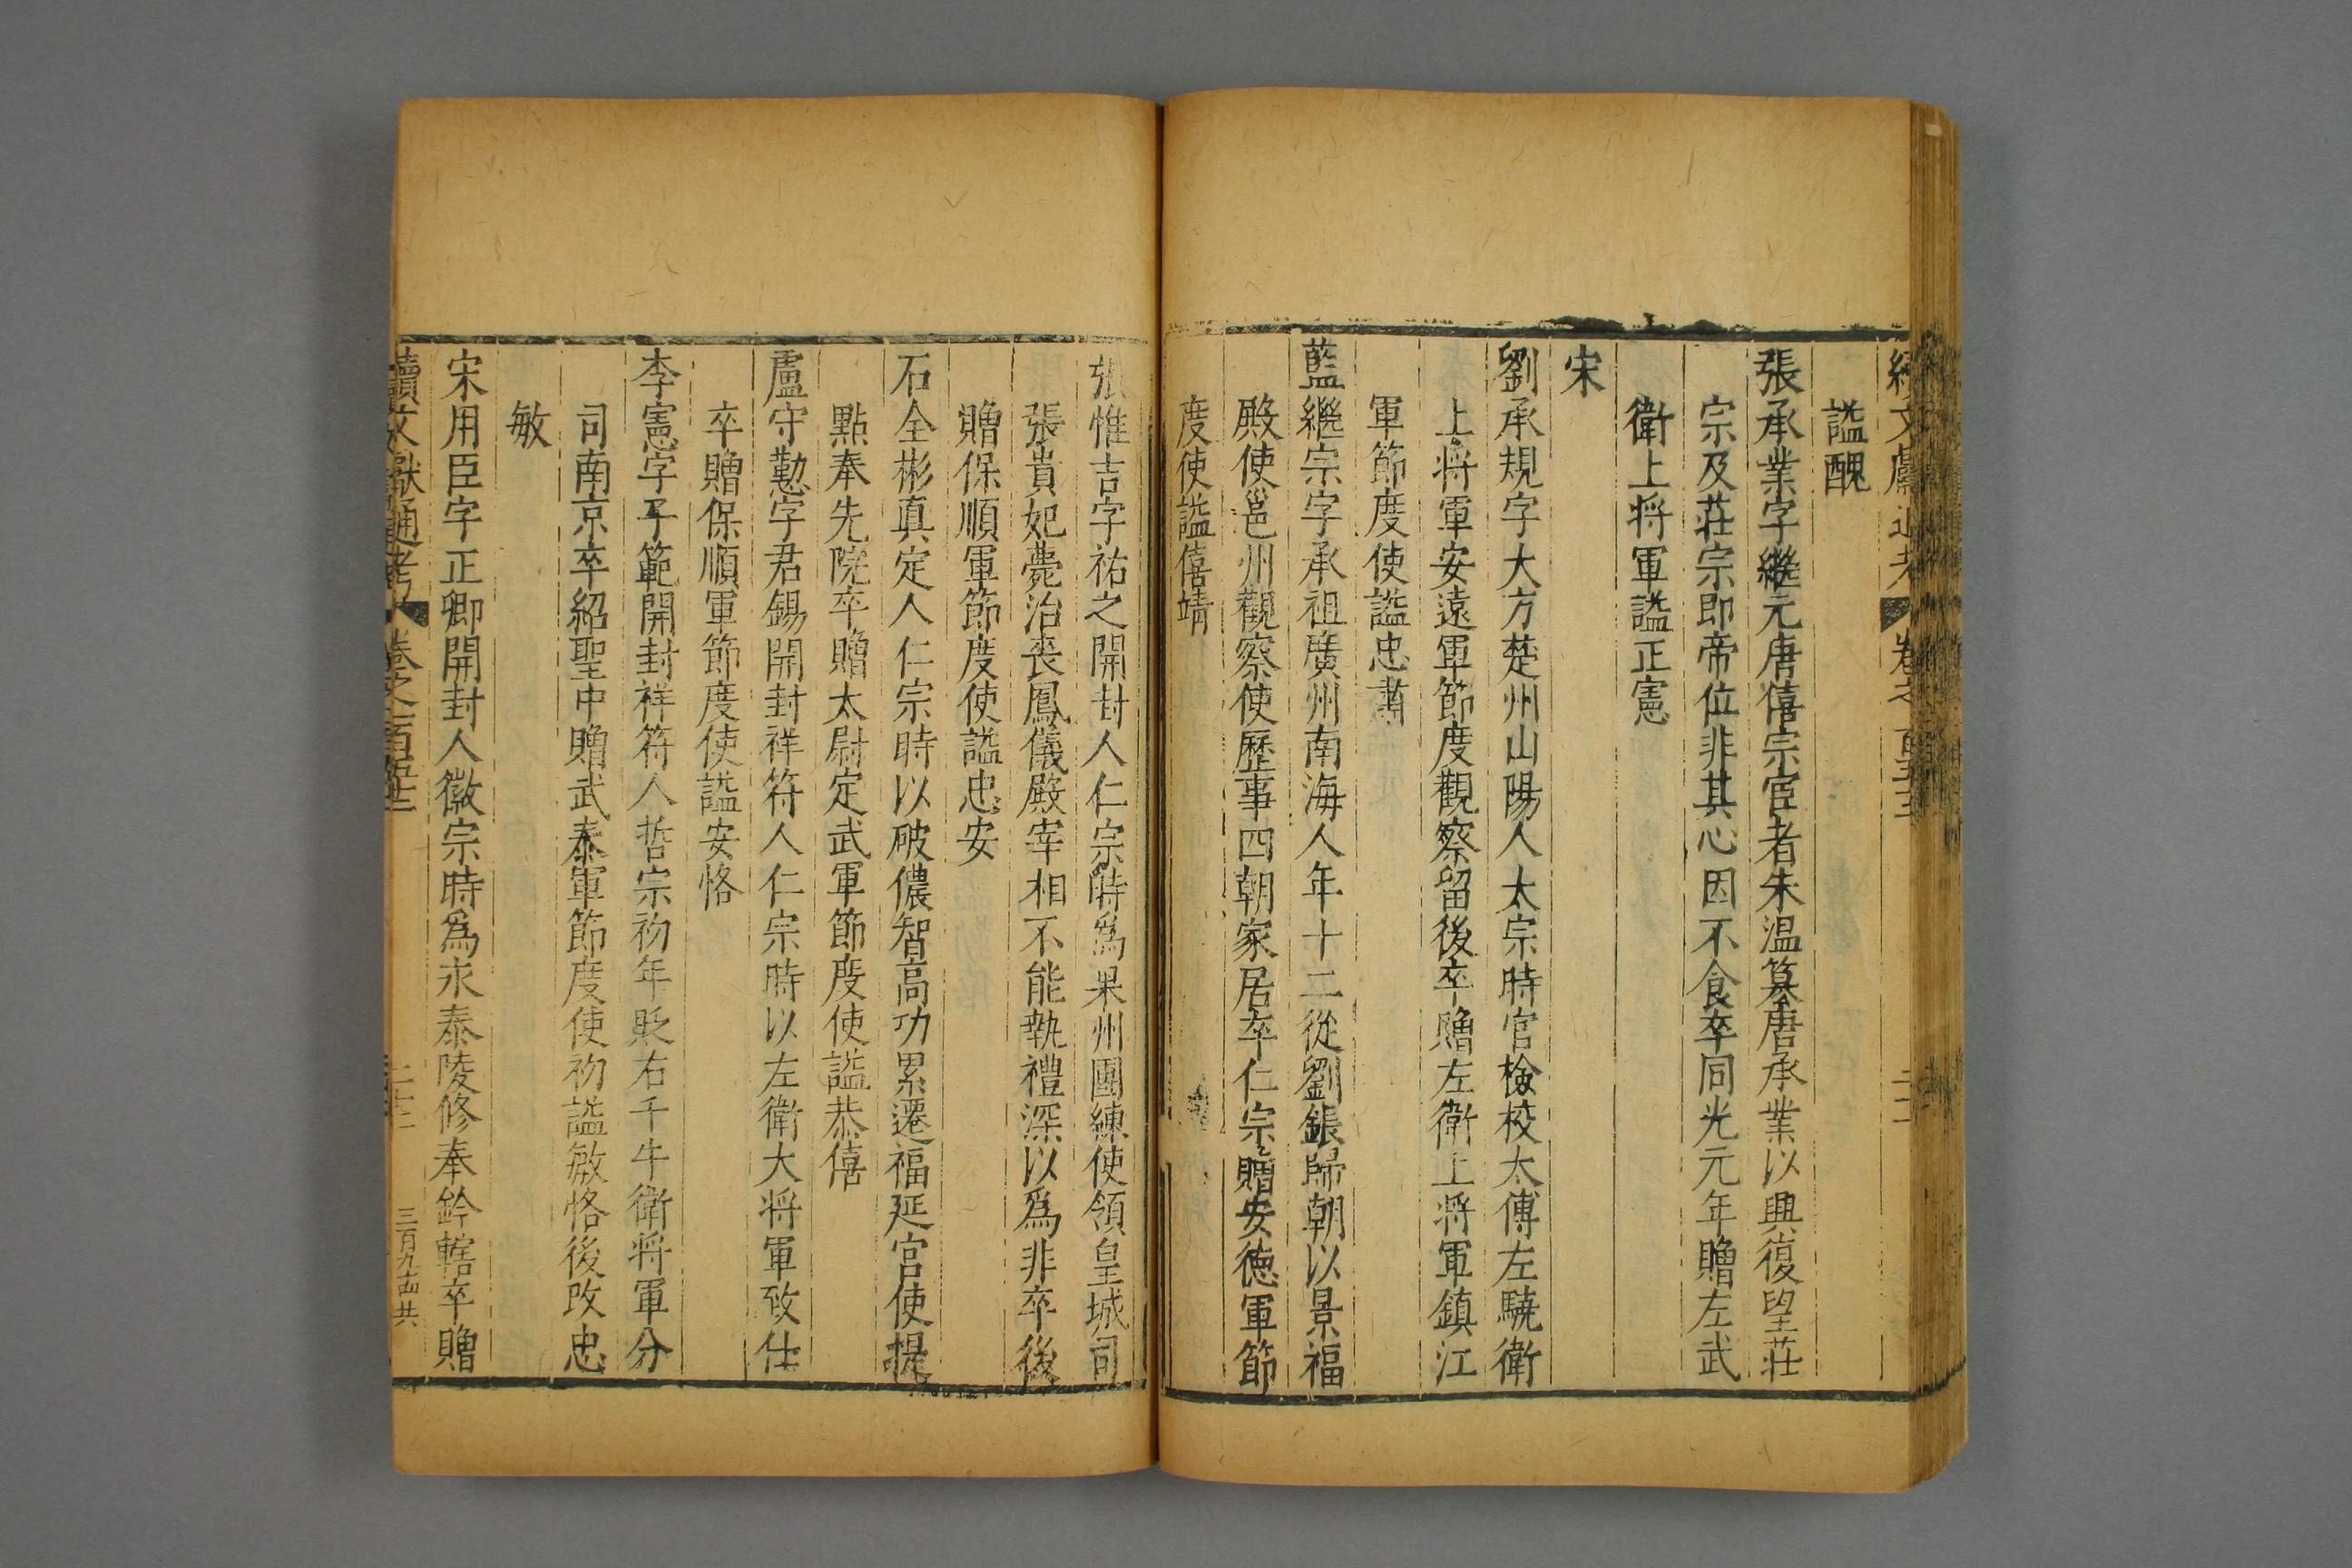 續文獻通考 卷之一百五十三 二十二
謚醜
張承業字繼元唐僖宗宦者朱温篡唐承業以興復望莊
宗及莊宗即帝位非其心因不食卒同光元年贈左武
衛上將軍謚正憲
宋
劉承規字大方楚州山陽人太宗時官檢校太傅左驍衛
上將軍安遠軍節度觀察留後卒贈左衛上將軍鎮江
軍節度使謚忠肅
藍繼宗字承祖廣州南海人年十二從劉鋹歸朝以景福
殿使邕州觀察使歷事四朝家居卒仁宗贈安德軍節
度使謚僖靖
張惟吉字祐之開封人仁宗時爲果州團練使領皇城司
張貴妃薨治喪鳳儀殿宰相不能執禮深以爲非卒後
贈保順軍節度使謚忠安
石全彬真定人仁宗時以破儂智高功累遷福延宫使提
點奉先院卒贈太尉定武軍節度使謚恭僖
盧守懃字君錫開封祥符人仁宗時以左衛大將軍致仕
卒贈保順軍節度使謚安恪
李憲字子範開封祥符人哲宗初年貶右千牛衛將軍分
司南京卒紹聖中贈武泰軍節度使初謚敏恪後改忠
敏
宋用臣字正卿開封人徽宗時爲永泰陵修奉鈐轄卒贈
續文獻通考 卷之一百 三百九十四共